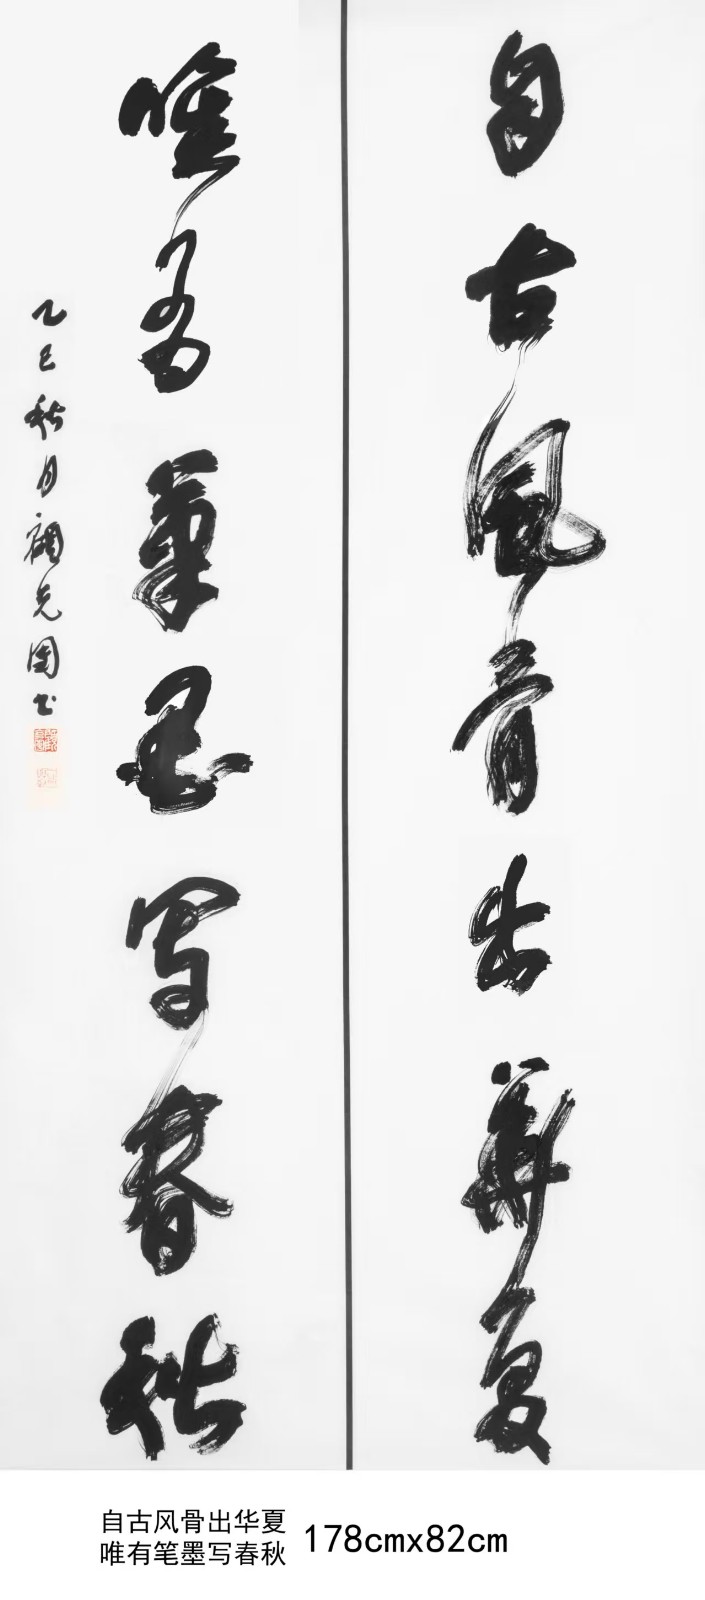 自古风骨出华夏
唯有笔墨写春秋
乙巳秋月顾先国书
自古风骨出华夏
唯有笔墨写春秋
178cmx82cm